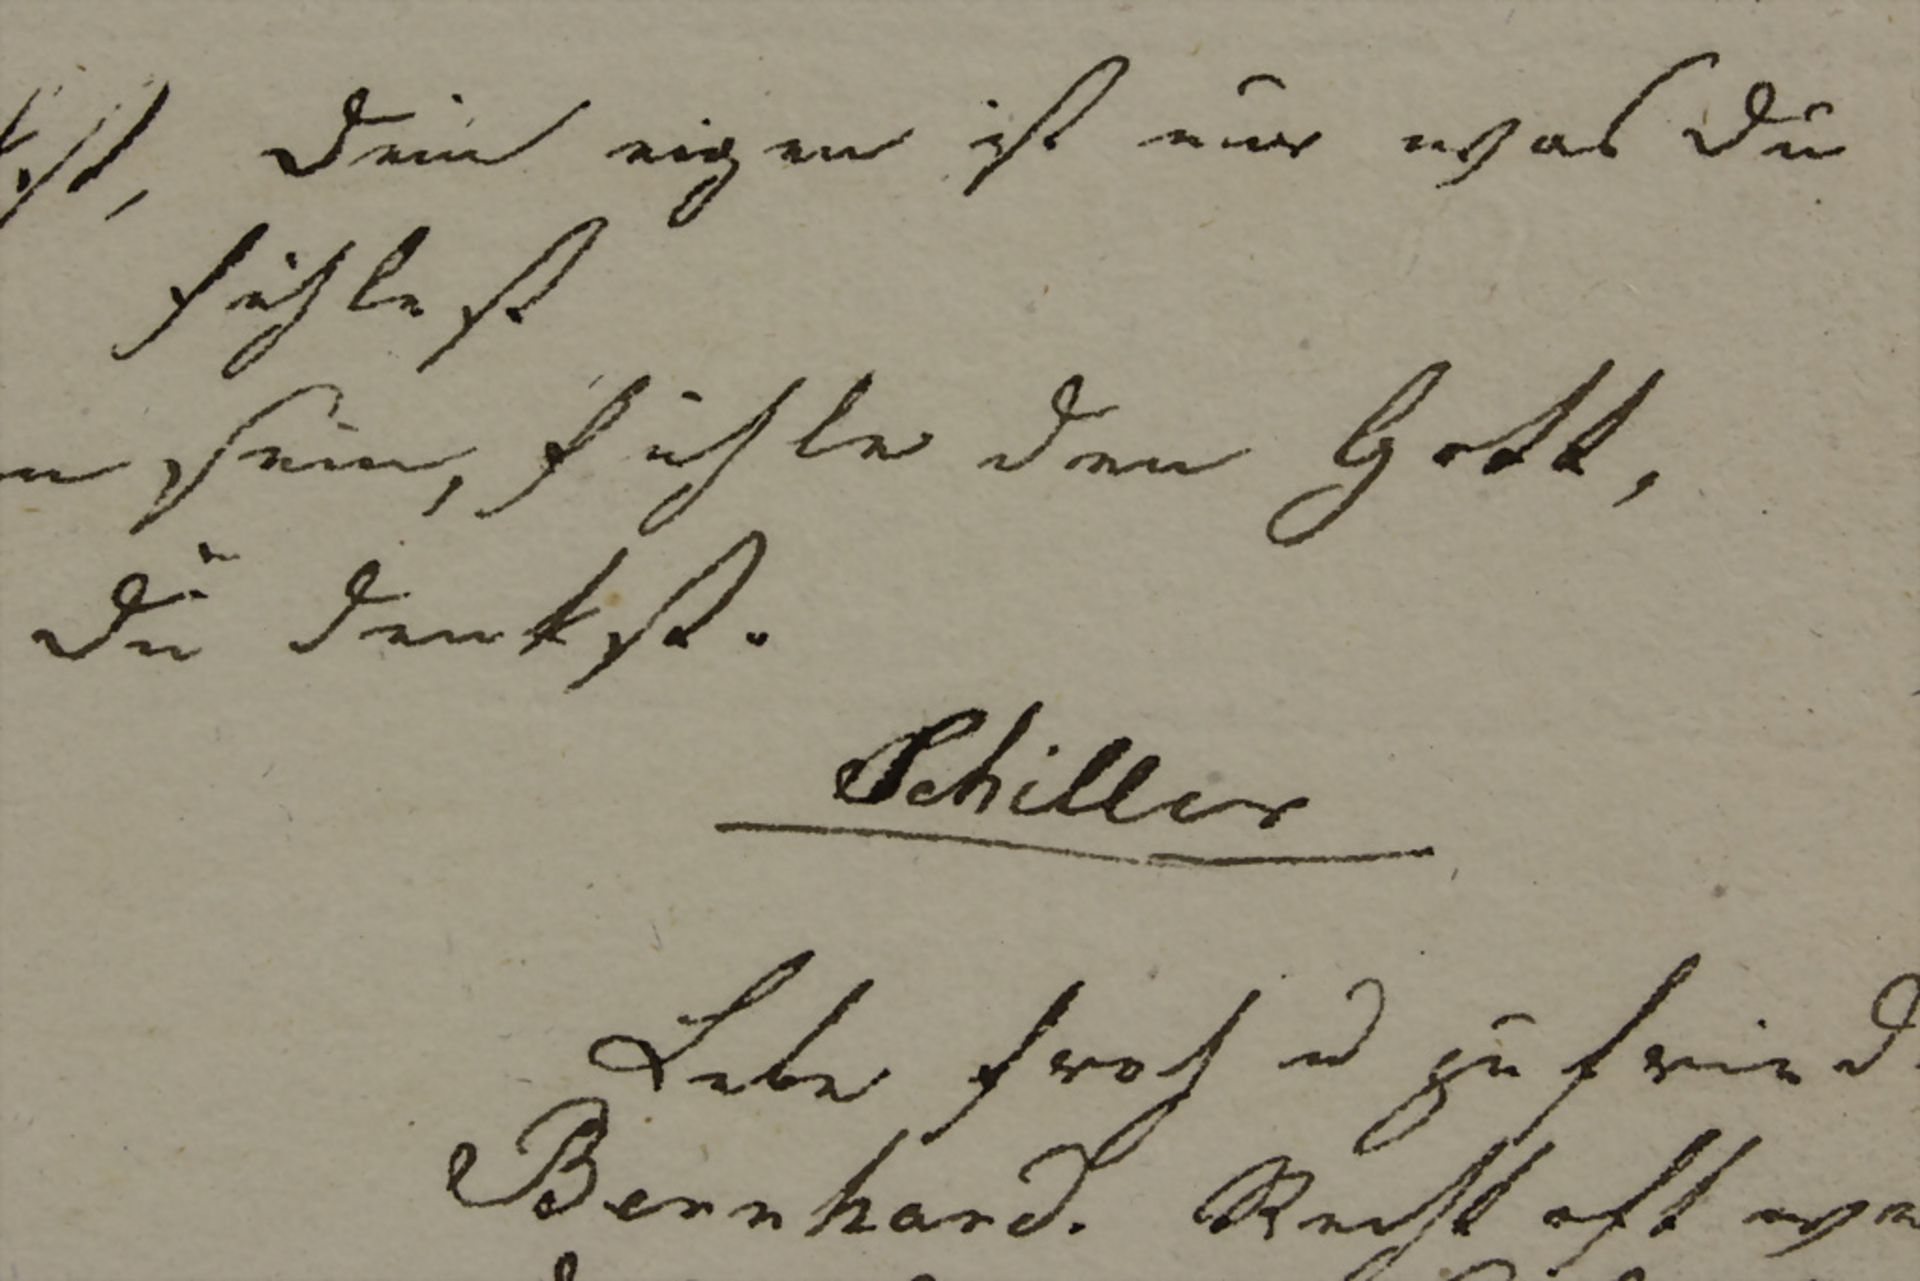 kst, Dein eigen ist nur was Du
fühlest
n sein, fühle den Gott,
Du denkst.
Schiller
Lebe froh u zufried
Bernhard. Recht oft we